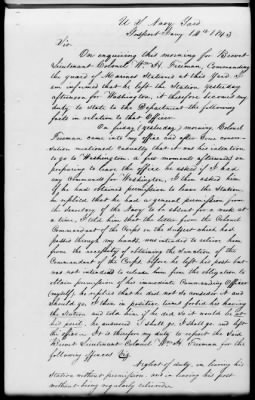 U. S. Navy Yard
Gosport Jany 14th 1843
Sir
On enquiring this morning for Brevet
Lieutenant Colonel Wm H. Freeman, Commanding
the guard of Marines Stationed at this Yard I
am informed that he left the Station yesterday
afternoon for Washington, it therefore becomes my
duty to state to the Department the following
facts in relation to that Officer.
On friday (yesterday) morning Colonel
Freeman came into my office and after some conver-
sation mentioned casually that it was his intention
to go to Washington, a few moments afterwards on
preparing to leave the office he asked if I had
any Commands for Washington, I then asked him
if he had obtained permission to leave the Station,
he replied that he had a general permission from
the Secretary of the Navy to be absent for a week at
a time, I told him that the letter from the Colonel
Commandant of the Corps on the subject which had
passed through my hands, was intended to relieve him
from the necessity of obtaining the sanction of the
Commandant of the Corps before he left his post but
was not intended to release him from the obligation to
obtain permission of his immediate Commanding Officer
(myself), he replied that he did not so consider it and
should go. I then in positive terms forbid his leaving
the Station and told him if he did so it would be at
his peril, he answered I shall go I shall go and left
the office. It is therefore my duty to report the said
Brevet Lieutenant Colonel Wm H. Freeman for the
following offences Viz,
Neglect of duty, in leaving his
Station without permission, and in leaving his post
without being regularly relieved.